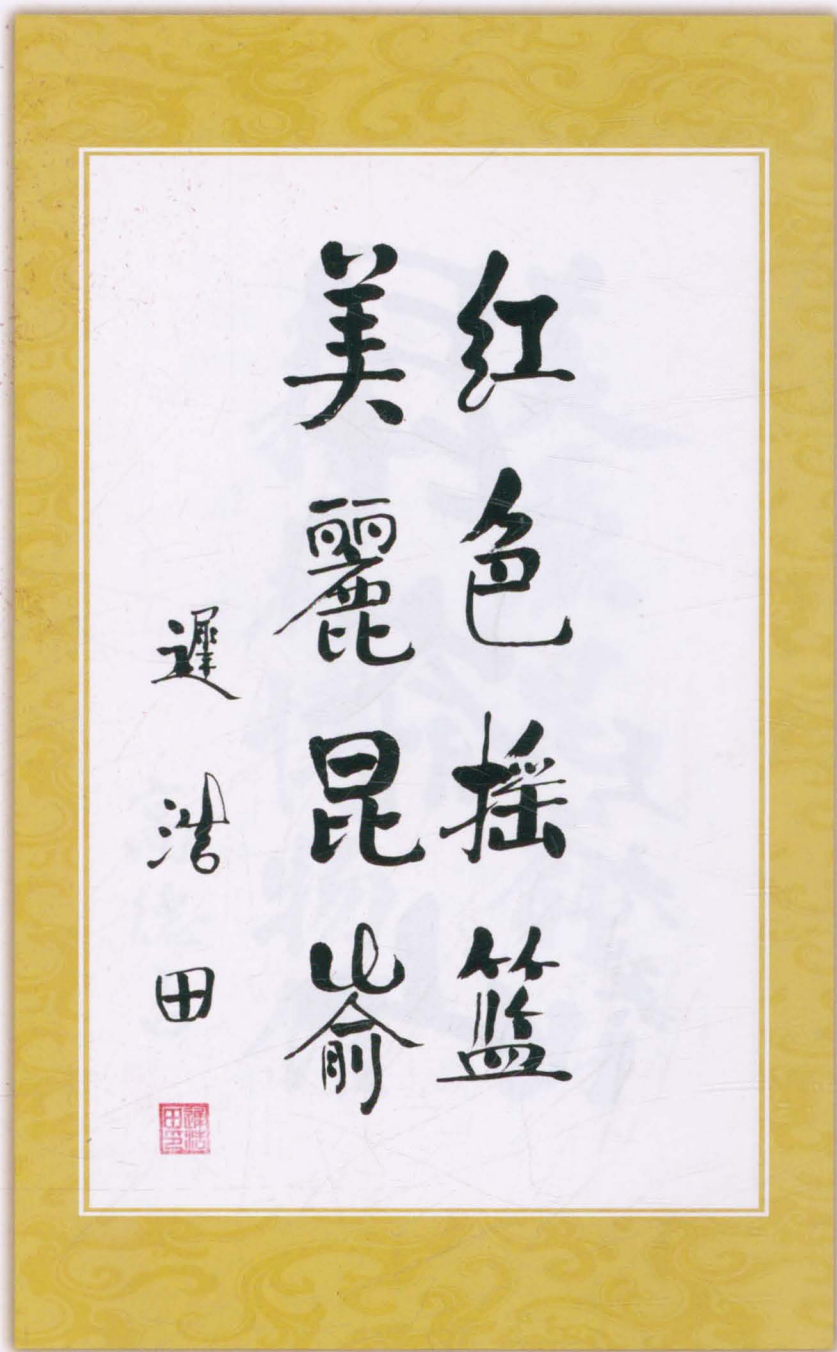 红色摇篮
美麗昆嵛
遲浩田
遲浩田印